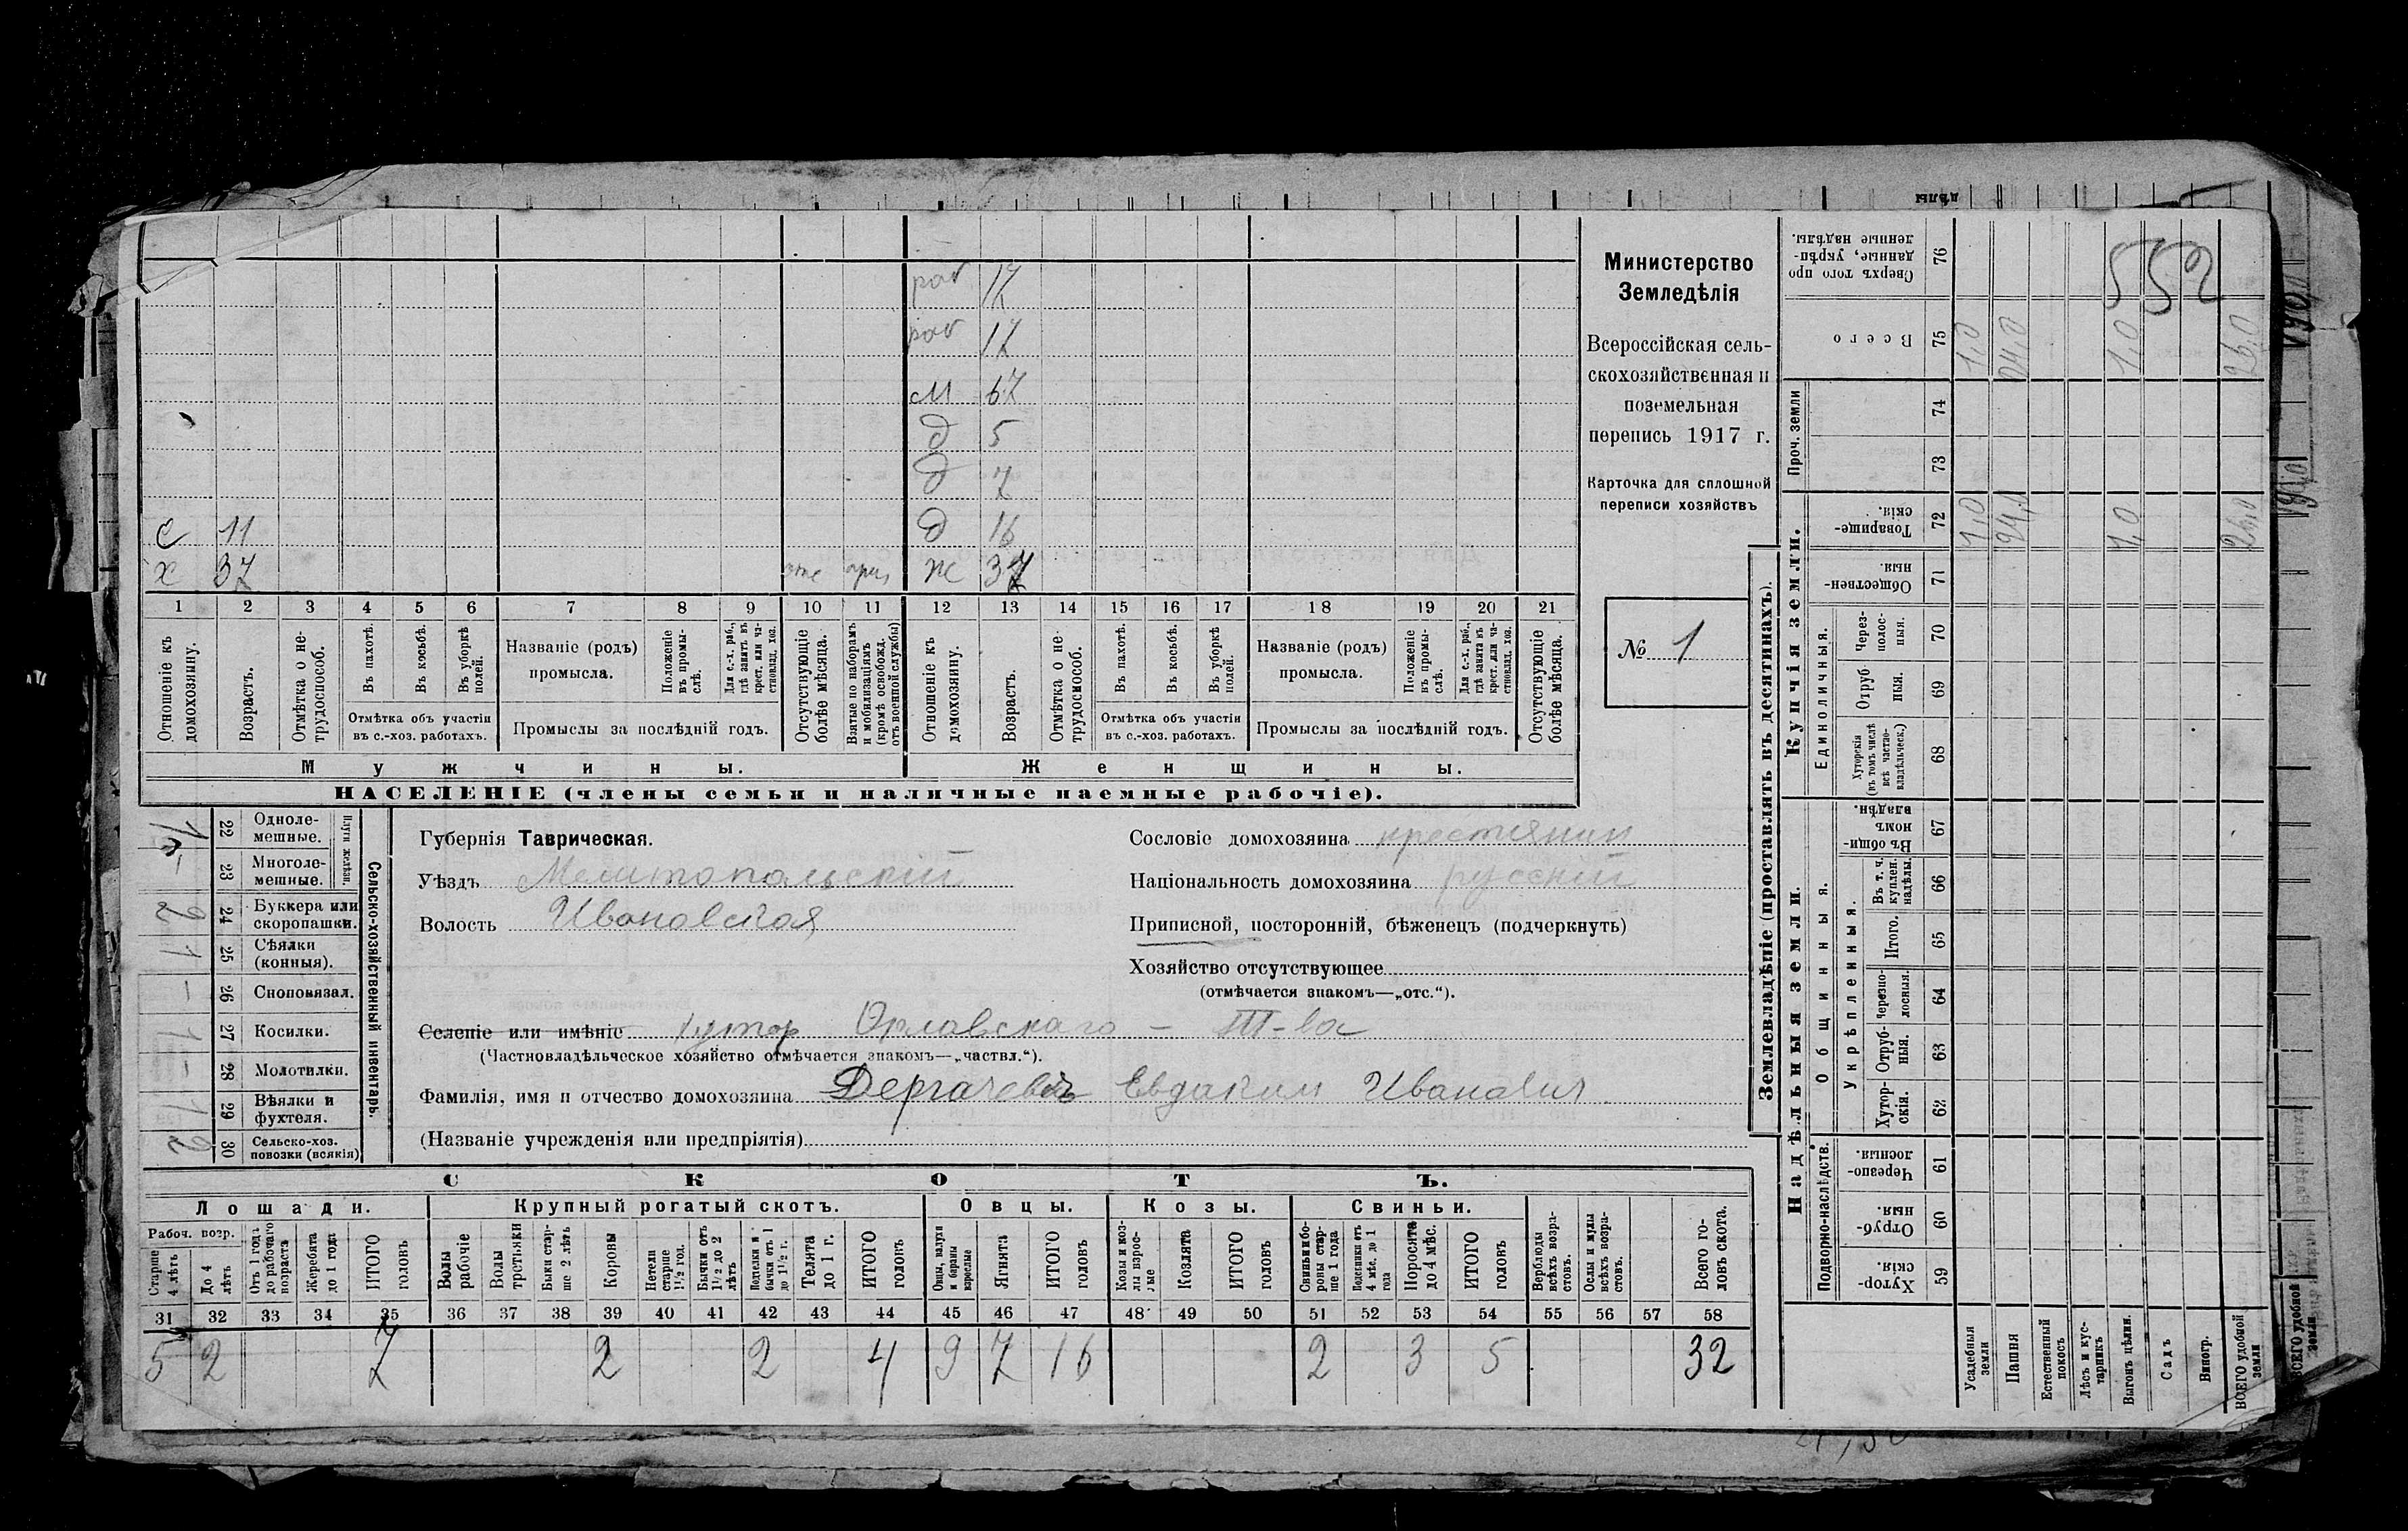 дѣлы
раб 17
раб 17
м 67
д 5
д 7
с 11 д 16
х 37 ж 37
1 2 3 4 5 6 7 8 9 10 11 12 13 14 15 16 17 18 19 20 21
Отношеніе къ домохозяину.
Возрастъ.
Отмѣтка о не-
трудоспособ.
Въ пахотѣ.
Въ косьбѣ.
Въ уборкѣ полей.
Отмѣтка объ участіи
въ с.-хоз. работахъ.
Названіе (родъ)
промысла.
Положеніе въ промы-
слѣ.
Для с.-х. раб., гдѣ занятъ въ крест. или ча-
стновлад. хоз.
Промыслы за послѣдній годъ.
Отсутствующіе болѣе мѣсяца.
Взятые по наборамъ и мобилизаціямъ (кромѣ освобожд. отъ военной службы)
Отношеніе къ домохозяину.
Возрастъ.
Отмѣтка о не-
трудоспособ.
Въ пахотѣ.
Въ косьбѣ.
Въ уборкѣ полей.
Отмѣтка объ участіи
въ с.-хоз. работахъ.
Названіе (родъ)
промысла.
Положеніе въ промы-
слѣ.
Для с.-х. раб., гдѣ занята въ крест. или ча-
стновлад. хоз.
Промыслы за послѣдній годъ.
Отсутствующіе болѣе мѣсяца.
Мужчины. Женщины.
НАСЕЛЕНІЕ (члены семьи и наличные наемные рабочіе).
Министерство
Земледѣлія
Всероссійская сель-
скохозяйственная и
поземельная
перепись 1917 г.
Карточка для сплошной
переписи хозяйствъ
№ 1
Сельско-хозяйственный инвентарь.
Плуги желѣзн.
22 Однолe-
мешные.
23 Многоле-
мешные.
2 24 Буккера или
скоропашки.
1 25 Сѣялки
(конныя).
– 26 Сноповязал.
1 27 Косилки.
– 28 Молотилки.
1 29 Вѣялки и
фухтеля.
2 30 Сельско-хоз.
повозки (всякія)
Губернія Таврическая.
Уѣздъ Мелитопольскій
Волость Ивановская
Сословіе домохозяина крестянин
Національность домохозяина русскій
Приписной, посторонній, бѣженецъ (подчеркнуть)
Хозяйство отсутствующее
(отмѣчается знакомъ—„отс.“).
Селеніе или имѣніе хутор Орлавскаго – Т-ва
(Частновладѣльческое хозяйство отмѣчается знакомъ—„частвл.“).
Фамилія, имя и отчество домохозяина Дергачевъ Евдаким Иванович
(Названіе учрежденія или предпріятія)
СКОТЪ.
Лошади. Крупный рогатый скотъ. Овцы. Козы. Свиньи.
Рабоч. возр.
Старше 4 лѣтъ
До 4 лѣтъ
Отъ 1 года до рабочаго возраста
Жеребята до 1 года
ИТОГО головъ
Волы рабочіе
Волы третьяки
Быки стар-
ше 2 лѣтъ
Коровы
Нетели старше 1½ год.
Бычки отъ 1½ до 2 лѣтъ
Подтелки и бычки отъ 1 до 1½ г.
Телята до 1 г.
ИТОГО головъ
Овцы, валухи и бараны взрослые
Ягнята
ИТОГО головъ
Козы и коз-
лы взрос-
лые
Козлята
ИТОГО головъ
Свиньи и бо-
ровы стар-
ше 1 года
Подсвинки отъ 4 мѣс. до 1 года
Поросята до 4 мѣс.
ИТОГО головъ
Верблюды всѣхъ возра-
стовъ.
Ослы и мулы всѣхъ возра-
стовъ.
Всего го-
ловъ скота.
31 32 33 34 35 36 37 38 39 40 41 42 43 44 45 46 47 48 49 50 51 52 53 54 55 56 57 58
5 2 7 2 2 4 9 7 16 2 3 5 32
Землевладѣніе (проставлять въ десятинахъ).
Надѣльныя земли. Купчія земли. Проч. земли
Подворно-наслѣдств. Общинныя. Укрѣпленныя. Единоличныя.
Хутор-
скія. 59
Отруб-
ныя. 60
Черезпо-
лосныя. 61
Хутор-
скія. 62
Отруб-
ныя. 63
Черезпо-
лосныя. 64
Итого. 65
Въ т. ч. куплен. надѣлы. 66
Въ общин-
номъ владѣн. 67
Хуторскія (въ томъ числѣ всѣ частно-
владѣльческ.) 68
Отруб
ныя. 69
Через-
полос-
ныя. 70
Обществен-
ныя. 71
Товарище-
скія. 72 1,0 24,0 1,0 26,0
73
74
Всего 75 1,0 24,0 1,0 26,0
Сверхъ того про
данные, укрѣп-
ленные надѣлы. 76
552
Усадебныя земли
Пашня
Естественный покосъ
Лѣсъ и кус-
тарникъ
Выгонъ цѣлин.
Садъ
Виногр.
ВСЕГО удобной земли
ВСЕГО удобной земли